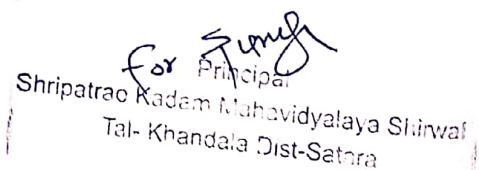 for
Principal
Shripatrao Kadam Mahavidyalaya Shirwal
Tal- Khandala Dist-Satara